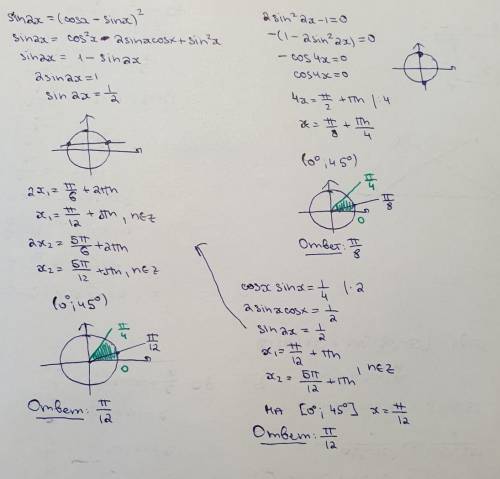 sin2x = (cosx - sinx)²
sin2x = cos²x - 2sinxcosx + sin²x
sin2x = 1 - sin2x
2sin2x = 1
sin2x = 1/2
2x₁ = π/6 + 2πn
x₁ = π/12 + πn, n∈Z
2x₂ = 5π/6 + 2πn
x₂ = 5π/12 + πn, n∈Z
(0°; 45°)
π/4
π/12
0
Ответ: π/12
2sin²2x - 1 = 0
-(1 - 2sin²2x) = 0
-cos4x = 0
cos4x = 0
4x = π/2 + πn |:4
x = π/8 + πn/4
(0°; 45°)
π/4
π/8
0
Ответ: π/8
cosx sinx = 1/4 |·2
2sinxcosx = 1/2
sin2x = 1/2
x₁ = π/12 + πn
x₂ = 5π/12 + πn, n∈Z
на [0°; 45°] x = π/12
Ответ: π/12